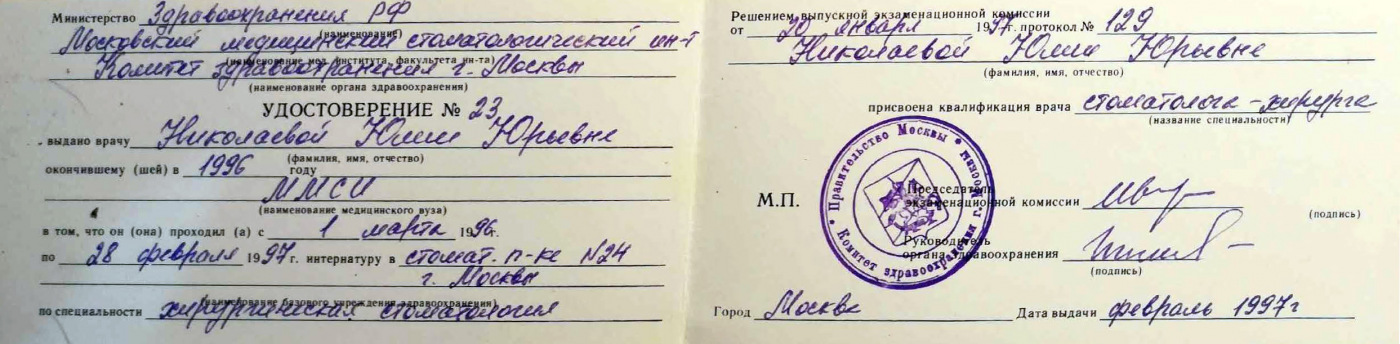 Министерство Здравоохранения РФ
(наименование)
Московский медицинский стоматологический ин-т
(наименование мед. института, факультета ин-та)
Комитет здравоохранения г. Москвы
(наименование органа здравоохранения)
УДОСТОВЕРЕНИЕ № 23
выдано врачу Николаевой Юлии Юрьевне
(фамилия, имя, отчество)
окончившему (шей) в 1996 году
ММСИ
(наименование медицинского вуза)
в том, что он (она) проходил (а) с 1 марта 1996г.
по 28 февраля 1997г. интернатуру в стомат. п-ке N24
г. Москвы
(наименование базового учреждения здравоохранения)
по специальности хирургическая стоматология
Решением выпускной экзаменационной комиссии
от 20 января 1997г. протокол № 129
Николаевой Юлии Юрьевне
(фамилия, имя, отчество)
присвоена квалификация врача стоматолога-хирурга
(название специальности)
М.П.
Правительство Москвы
Комитет здравоохранения г. Москвы
Председатель
экзаменационной комиссии
(подпись)
Руководитель
органа здравоохранения
(подпись)
Город Москва Дата выдачи февраль 1997г